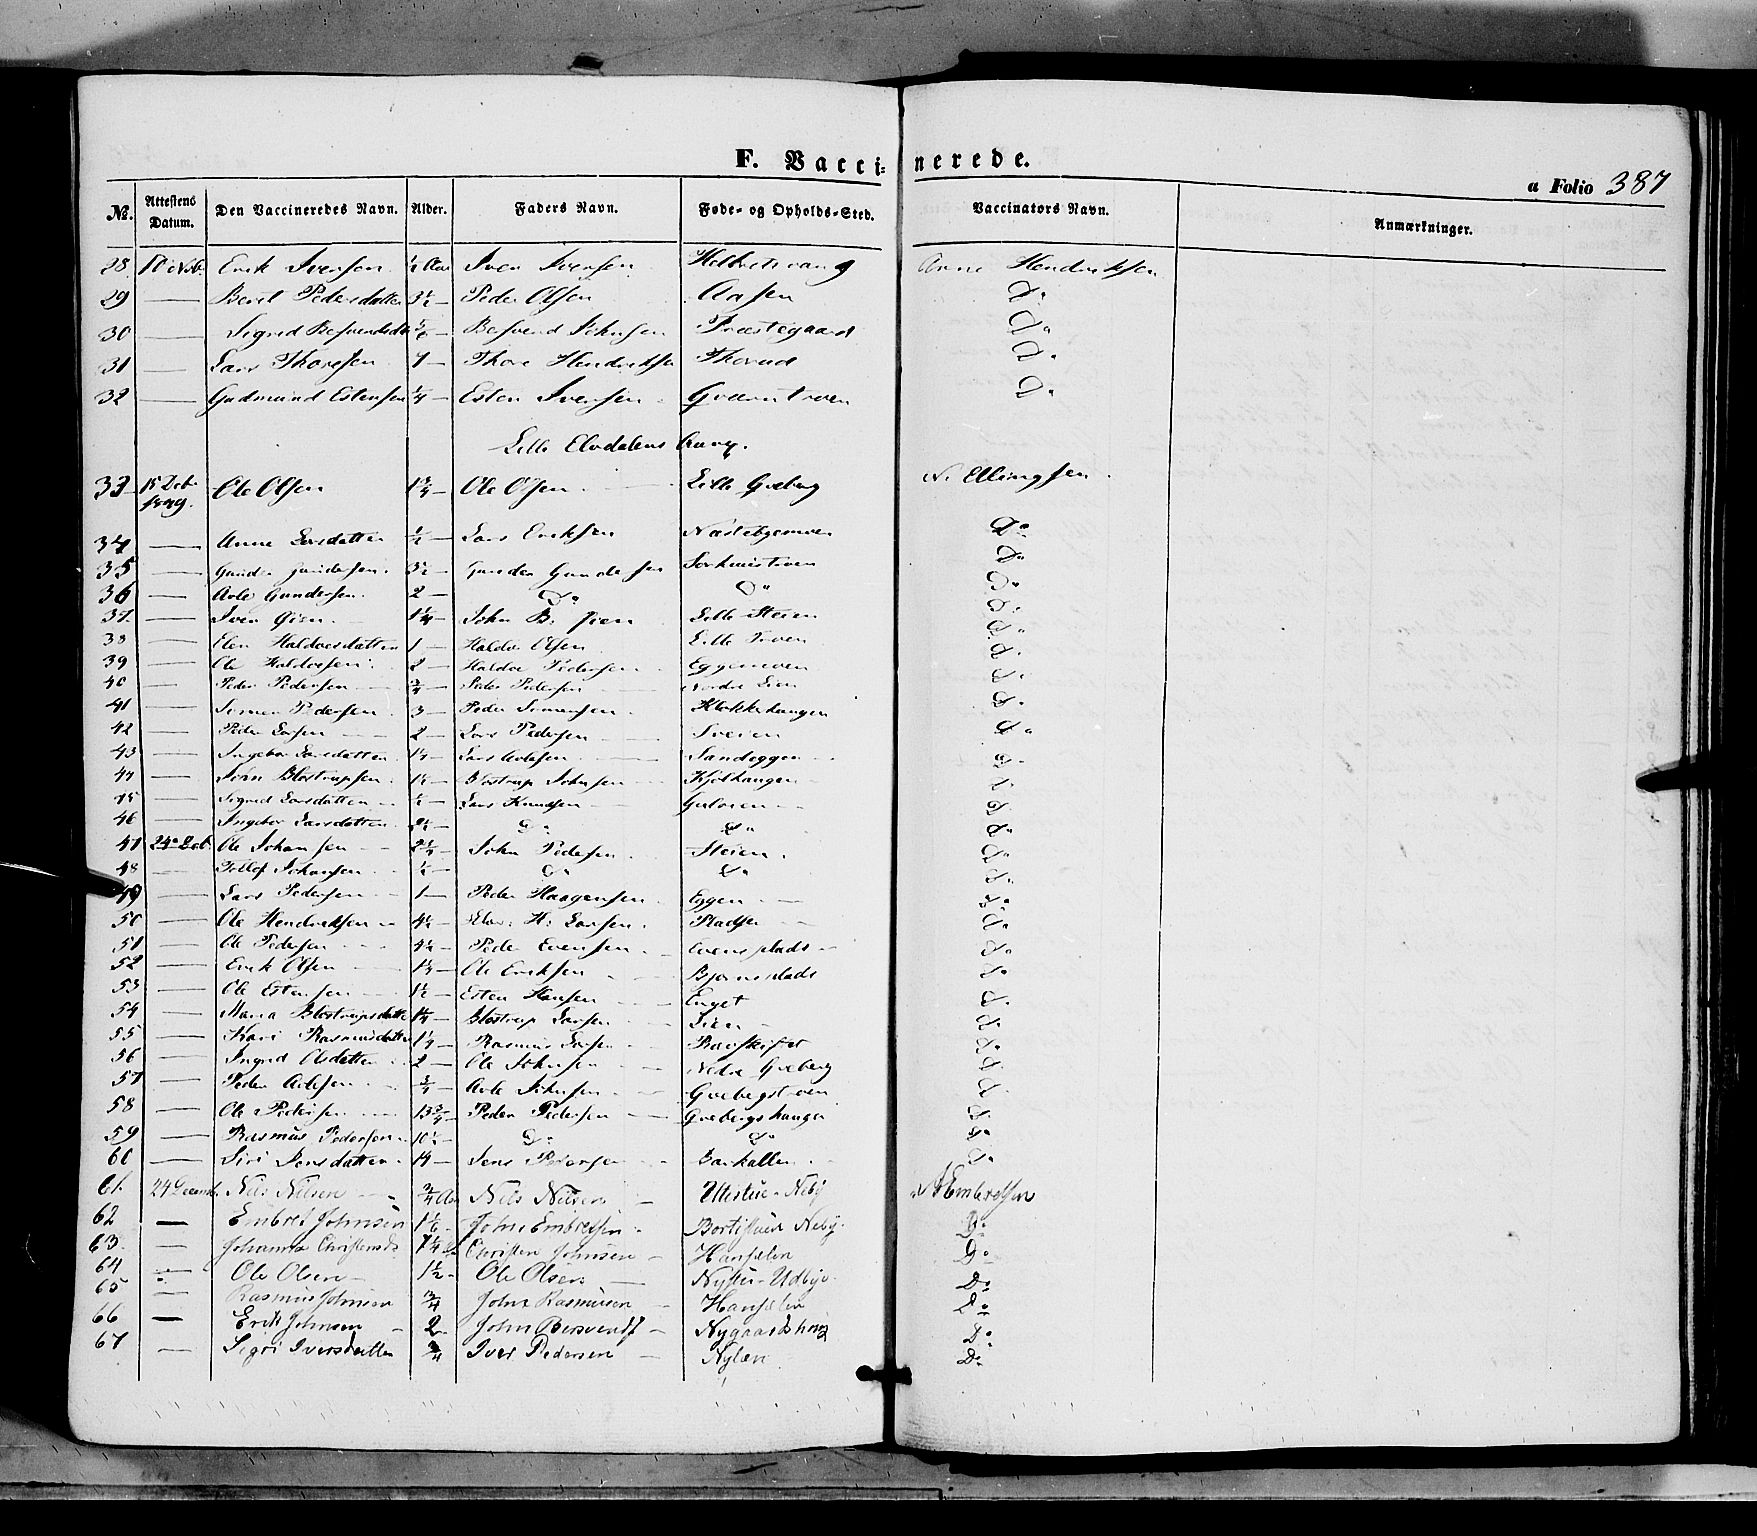 F. Vaccinerede.
a Folio 387
No. Attestens Datum. Den Vaccineredes Navn. Alder. Faders Navn. Føde- og Opholds-Sted. Vaccinators Navn. Anmærkninger.
28 10 Nvb. Erik Iversen ½ Aar Iver Iversen Anne Hendriksen
29 — Berit Pedersdatter 3½ — Peder Olsen Aasen Do
30 — Sigrid Besvendsdtr — Besvend Johnsen Præstegaard Do
31 — Lars Thoresen 7 — Thore Hendriksen Do
32 — Gudmund Estensen ¼ — Esten Iversen Do
Lille Elvdalens Annex.
33 15 Deb. 1849. Ole Olsen 1¾ — Ole Olsen Lille Qveberg N. Ellingsen
34 — Anne Larsdatter ½ — Lars Eriksen Do
35 — Gunder Gundersen 3½ — Gunder Gundersen Do
36 — Arle Gundersen 2 — Do Do Do
37 — Iver 1¼ — John Lille Steien Do
38 — Elen Haldorsdatter 1 — Haldor Olsen Do
39 — Ole Haldorsen 2 — Haldor Pedersen Eggemoen Do
40 — Peder Pedersen ¾ — Peder Pedersen Nordre Lien Do
41 — Simen Pedersen 3 — Peder Simensen Klokkerhaugen Do
42 — Peder Larsen 2 — Lars Pedersen Do
43 — Ingebor Larsdatter 1½ — Lars Arlesen Sandeggen Do
44 — John Blostrupsen 1½ — Blostrup Johnsen Kjølhaugen Do
45 — Sigrid Larsdatter ½ — Lars Knudsen Do
46 — Ingebor Larsdatter Do Do Do
47 24de Deb. Ole Johansen 2½ — John Pedersen Steien Do
48 — Tollef Johansen ½ — Do Do Do
49 — Lars Pedersen 1 — Peder Haagensen Eggen Do
50 — Ole Hendriksen 4½ — H: Larsen Pladsen Do
51 — Ole Pedersen 4½ — Peder Evensen Evensplads Do
52 — Erik Olsen 1½ — Ole Eriksen Bjørnsplads Do
53 — Ole Estensen 1½ — Esten Hansen Enget Do
54 — Maria Blostrupsdatter — Blostrup Larsen Lien Do
55 — Kari Rasmusdatter 1½ — Rasmus Larsen Do
56 — Ingrid Olsdatter 2 — Ole Johnsen Nedre Qveberg Do
57 — Peder Arlesen ¾ — Arle Johnsen Qvebergstroen Do
58 — Ole Pedersen 13¾ — Peder Pedersen Qvebergshaugen Do
59 — Rasmus Pedersen 10½ — Do Do Do
60 — Siri Jensdatter 14 — Jens Pedersen Barkallen Do
61. 24 Decemb. Nils Nilsen ¾ Aar Nils Nilsen — Utistue-Neby N. Embretsen
62 — Embret Johnsen 1⅙ John Embretsen Bortistuen Neby. Do
63. — Johanna Christensd. 7¼ Christen Johnsen — Hansælen Do
64 — Ole Olsen 1½ Ole Olsen — Nystu-Udby. Do
65 — Rasmus Johnsen ¾ John Rasmusen — Hansælen Do
66 — Erik Johnsen 2 John Bersvends. — Nygaardshoug Do
67 — Sigri Iversdatter ¾ Iver Pedersen — Nylæn Do